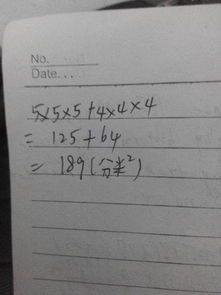 No.
Date. . . .
5×5×5+4×4×4
= 125+64
= 189(分米²)